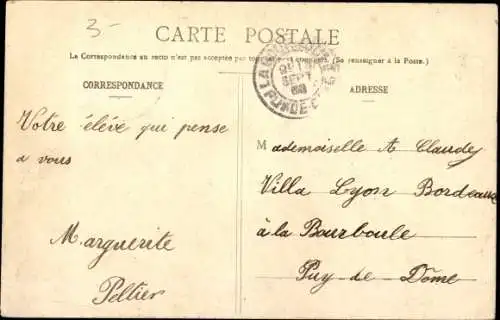 3-
CARTE POSTALE
La Correspondance au recto n'est pas acceptée par tous (Se renseigner à la Poste.)
CORRESPONDANCE
ADRESSE
Votre élève qui pense
a vous
Marguerite
Pellier
Mademoiselle A Claudey
Villa Lyon Bordeaux
à la Bourboule
Puy-de-Dôme
SEPT
PUY-DE-D